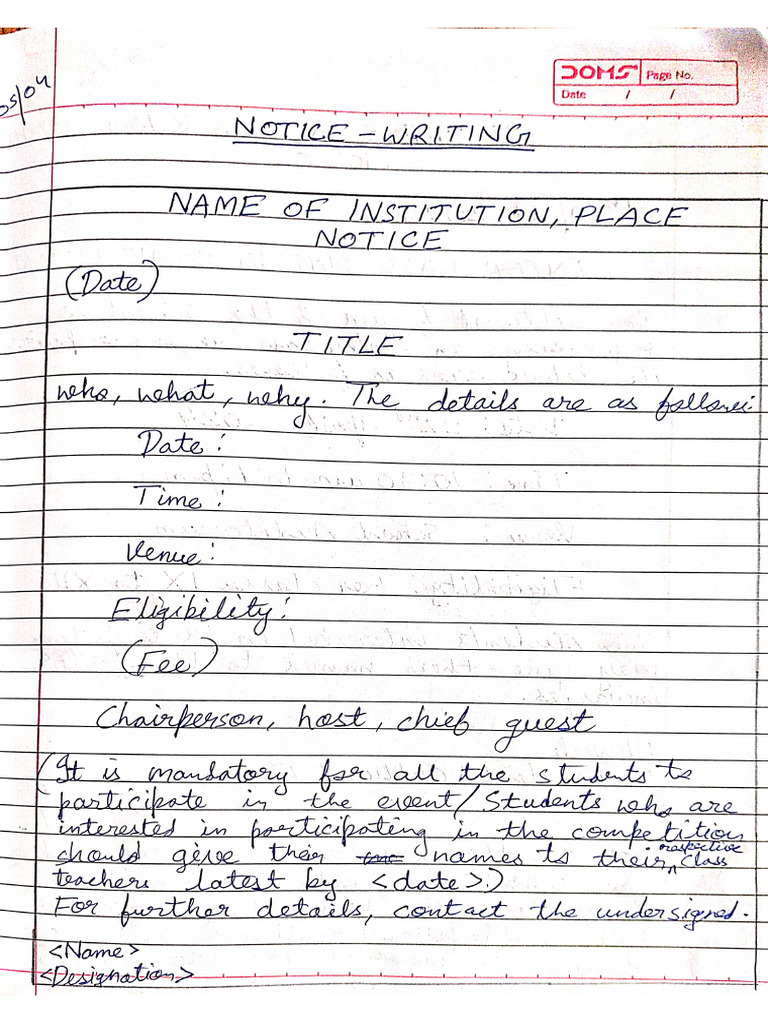 05/04
DOMS Page No.
Date / /
NOTICE - WRITING
NAME OF INSTITUTION, PLACE
NOTICE
(Date)
TITLE
who, what, why. The details are as follows:
Date :
Time :
Venue :
Eligibility :
(Fee)
Chairperson, host, chief guest
(It is mandatory for all the students to
participate in the event/Students who are
interested in participating in the competition
should give their names to their respective class
teachers latest by <date>.)
For further details, contact the undersigned.
<Name>
<Designation>